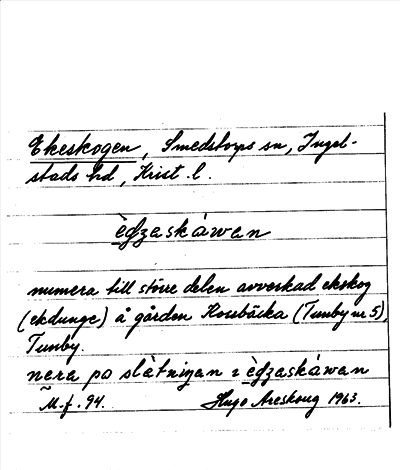 Ekeskogen, Smedstorps sn, Ingel-
stads hd, Krist. l.
èdʒaskáwan
numera till större delen avverkad ekskog
(ekdunge) å gården Rossbäcka (Tunby nr 5),
Tunby.
nera po slàtniŋan i èdʒaskáwan
M.f. 94. Hugo Areskoug 1963.